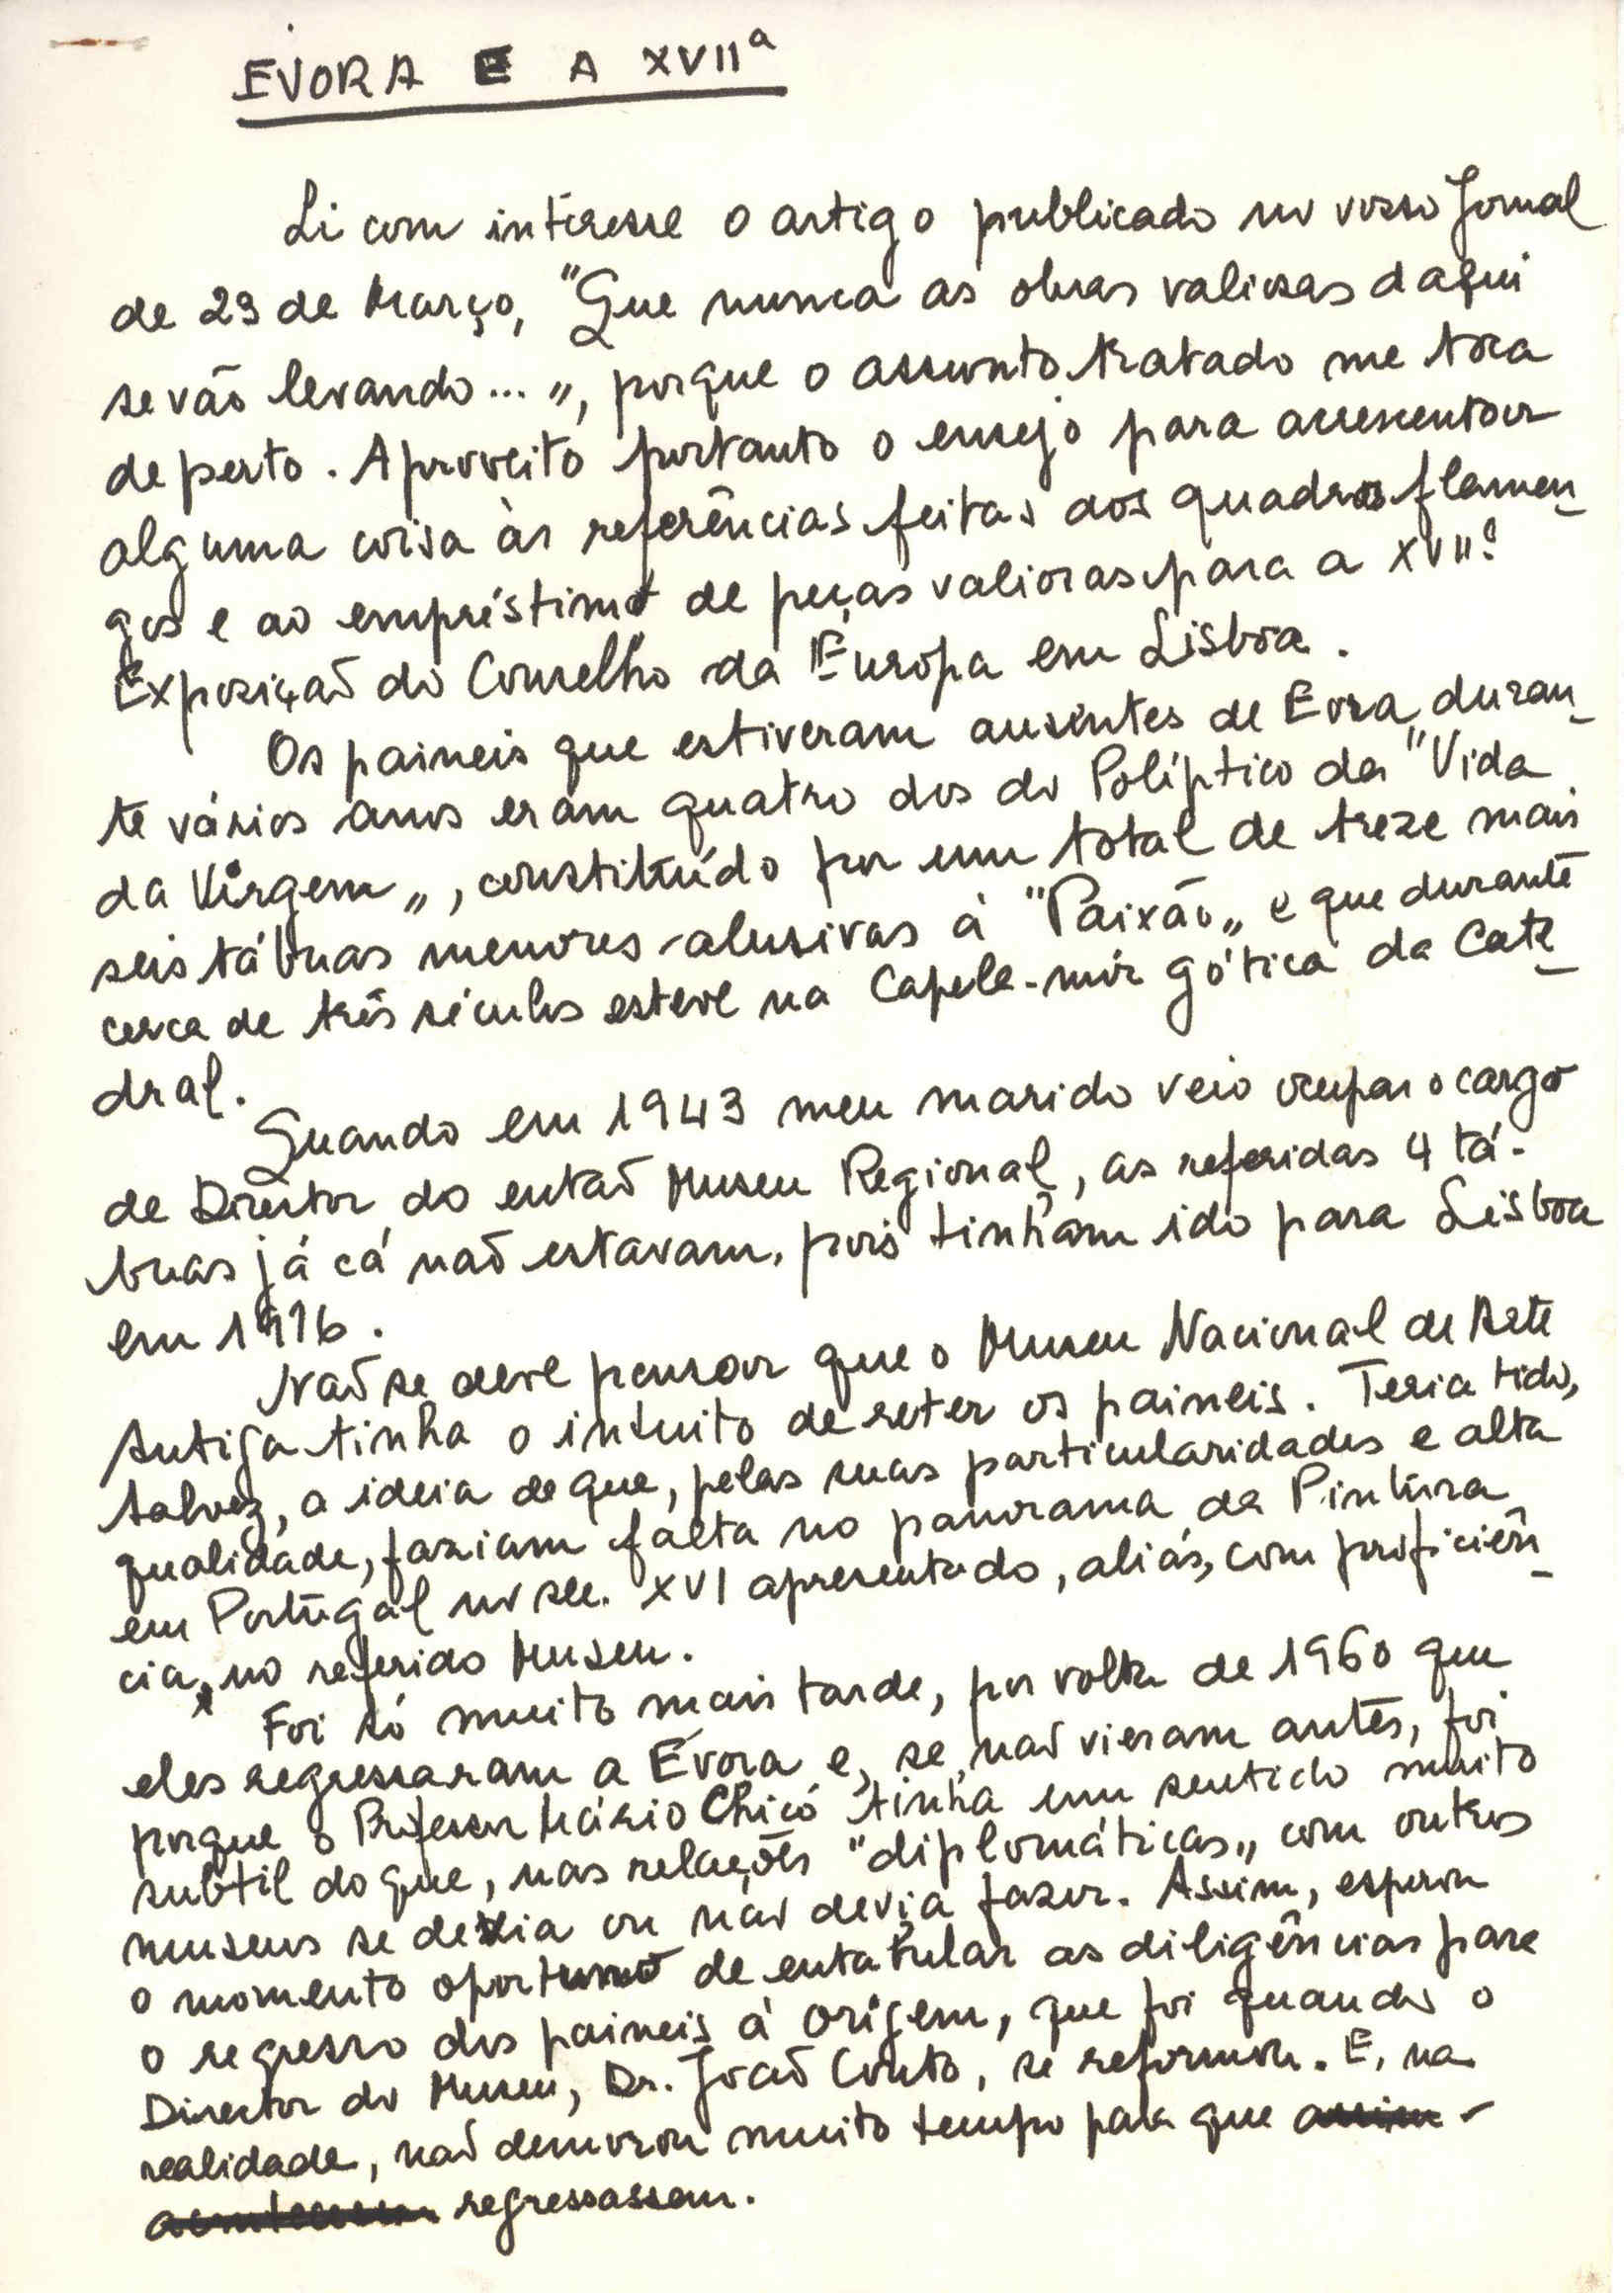 EVORA E A XVIIª
Li com interesse o artigo publicado no vosso Jornal
de 29 de Março, "Que nunca as obras valiosas daqui
se vão levando... ", porque o assunto tratado me toca
de perto. Aproveito portanto o ensejo para acrescentar
alguma coisa às referências feitas aos quadros flamen-
gos e ao empréstimo de peças valiosas para a XVIIª
Exposição do Conselho da Europa em Lisboa.
Os paineis que estiveram ausentes de Evora duran-
te vários anos eram quatro dos do Políptico da "Vida
da Virgem", constituído por um total de treze mais
seis tábuas menores alusivas à "Paixão" e que durante
cerca de três séculos esteve na Capela-mór gótica da Cate-
dral.
Quando em 1943 meu marido veio ocupar o cargo
de Director do então Museu Regional, as referidas 4 tá-
buas já cá não estavam, pois tinham ido para Lisboa
em 1916.
Não se deve pensar que o Museu Nacional de Arte
Antiga tinha o intuito de reter os paineis. Teria tido,
talvez, a ideia de que, pelas suas particularidades e alta
qualidade, faziam falta no panorama da Pintura
em Portugal no sec. XVI apresentado, aliás, com proficiên-
cia, no referido Museu.
Foi só muito mais tarde, por volta de 1960 que
eles regressaram a Évora e, se não vieram antes, foi
porque o Professor Mário Chicó tinha um sentido muito
subtil do que, nas relações "diplomáticas" com outros
museus se devia ou não devia fazer. Assim, esperou
o momento oportuno de entabular as diligências para
o regresso dos paineis à origem, que foi quando o
Director do Museu, Dr. João Couto, se reformou. E, na
realidade, não demorou muito tempo para que assim -
acontecessem regressassem.